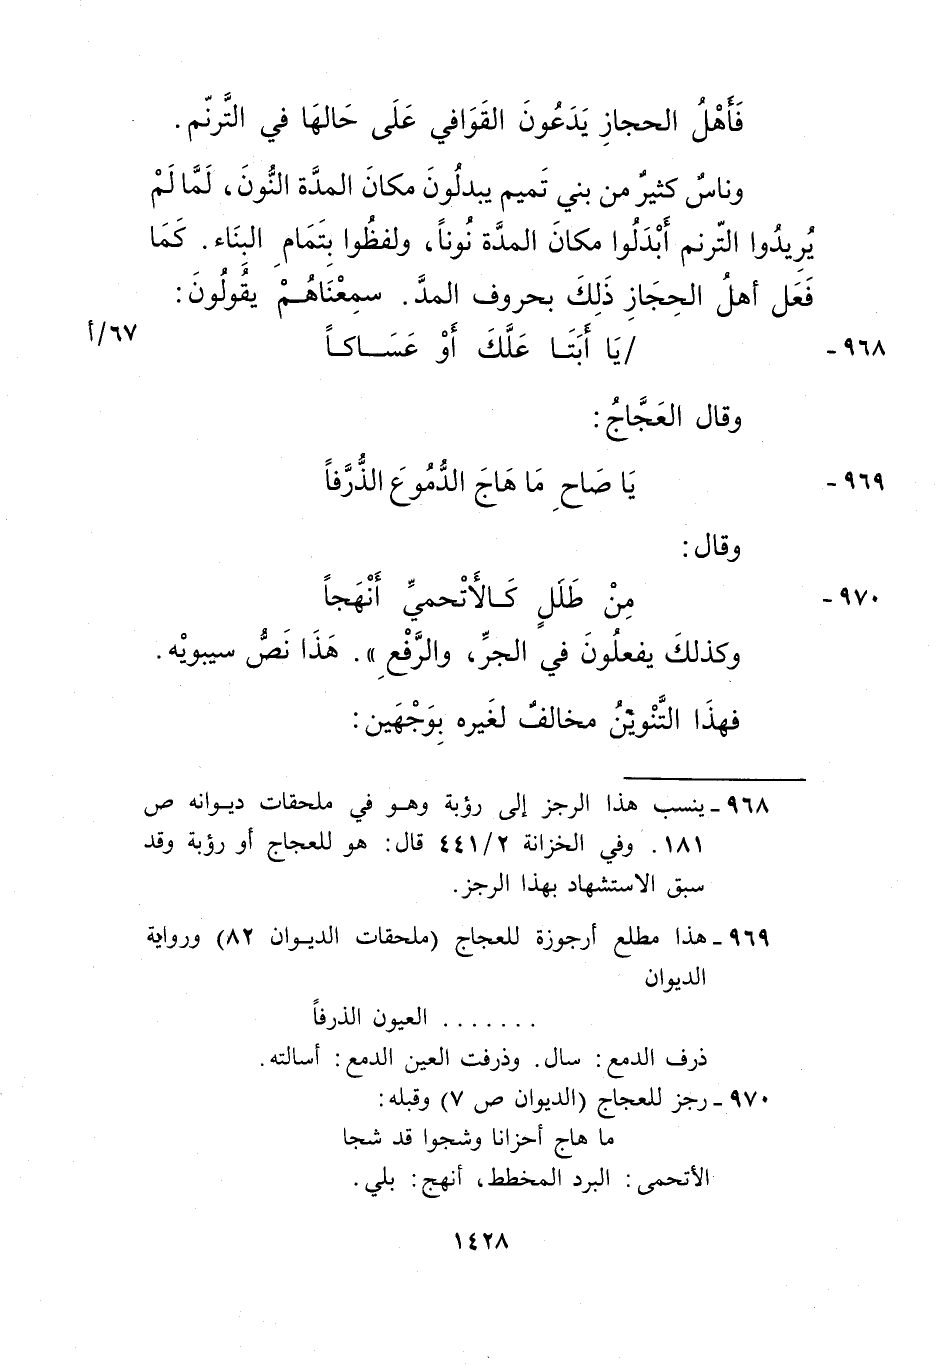 فَأَهْلُ الحجازِ يَدَعُونَ القَوَافي عَلَى حَالهَا في التَّرنّم .
وناسٌ كثيرٌ من بني تَميم يبدلُونَ مكانَ المدَّة النُّونَ، لَمَّا لَمْ
يُرِيدُوا التّرنم أَبْدَلُوا مكانَ المدَّة نُوناً، ولفظُوا بِتَمَامِ البِنَاء . كَمَا
فَعَل أهلُ الحِجَازِ ذَلِكَ بحروف المدَّ . سمِعْنَاهُمْ يقُولُونَ :
٩٦٨ - /يَا أَبَتَا عَلَّكَ أَوْ عَسَاكاً ٦٧/أ
وقال العَجَّاجُ :
٩٦٩ - يَا صَاحِ مَا هَاجَ الدُّمُوعَ الذُّرَّفاً
وقال :
٩٧٠ - مِنْ طَلَلٍ كَالأَتْحميِّ أَنْهَجاً
وكذلكَ يفعلُونَ في الجرِّ، والرَّفْعِ » . هَذَا نَصُّ سيبويْه .
فهذَا التَّنْويْنُ مخالفٌ لغَيره بِوَجْهَين :
٩٦٨ - ينسب هذا الرجز إلى رؤبة وهو في ملحقات ديوانه ص
١٨١ . وفي الخزانة ٤٤١/٢ قال : هو للعجاج أو رؤبة وقد
سبق الاستشهاد بهذا الرجز .
٩٦٩ - هذا مطلع أرجوزة للعجاج (ملحقات الديوان ٨٢) ورواية
الديوان
. . . . . . . العيون الذرفاً
ذرف الدمع : سال . وذرفت العين الدمع : أسالته .
٩٧٠ - رجز للعجاج (الديوان ص ٧) وقبله :
ما هاج أحزانا وشجوا قد شجا
الأتحمى : البرد المخطط، أنهج : بلي .
١٤٢٨